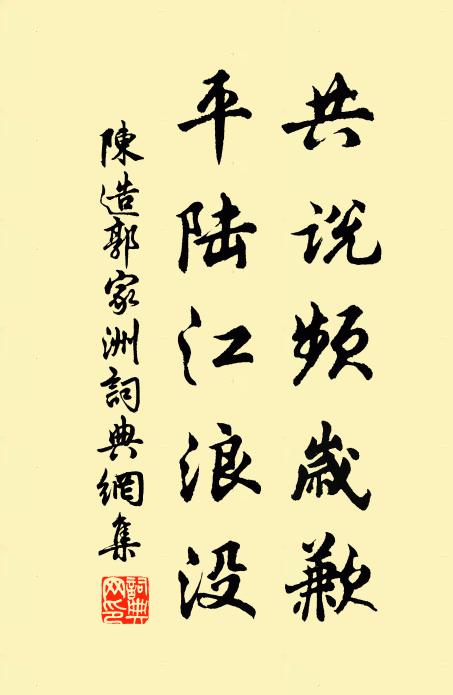 共说频歲歉
平陆江浪没
陳造郭家洲詞典網集
詞典网印